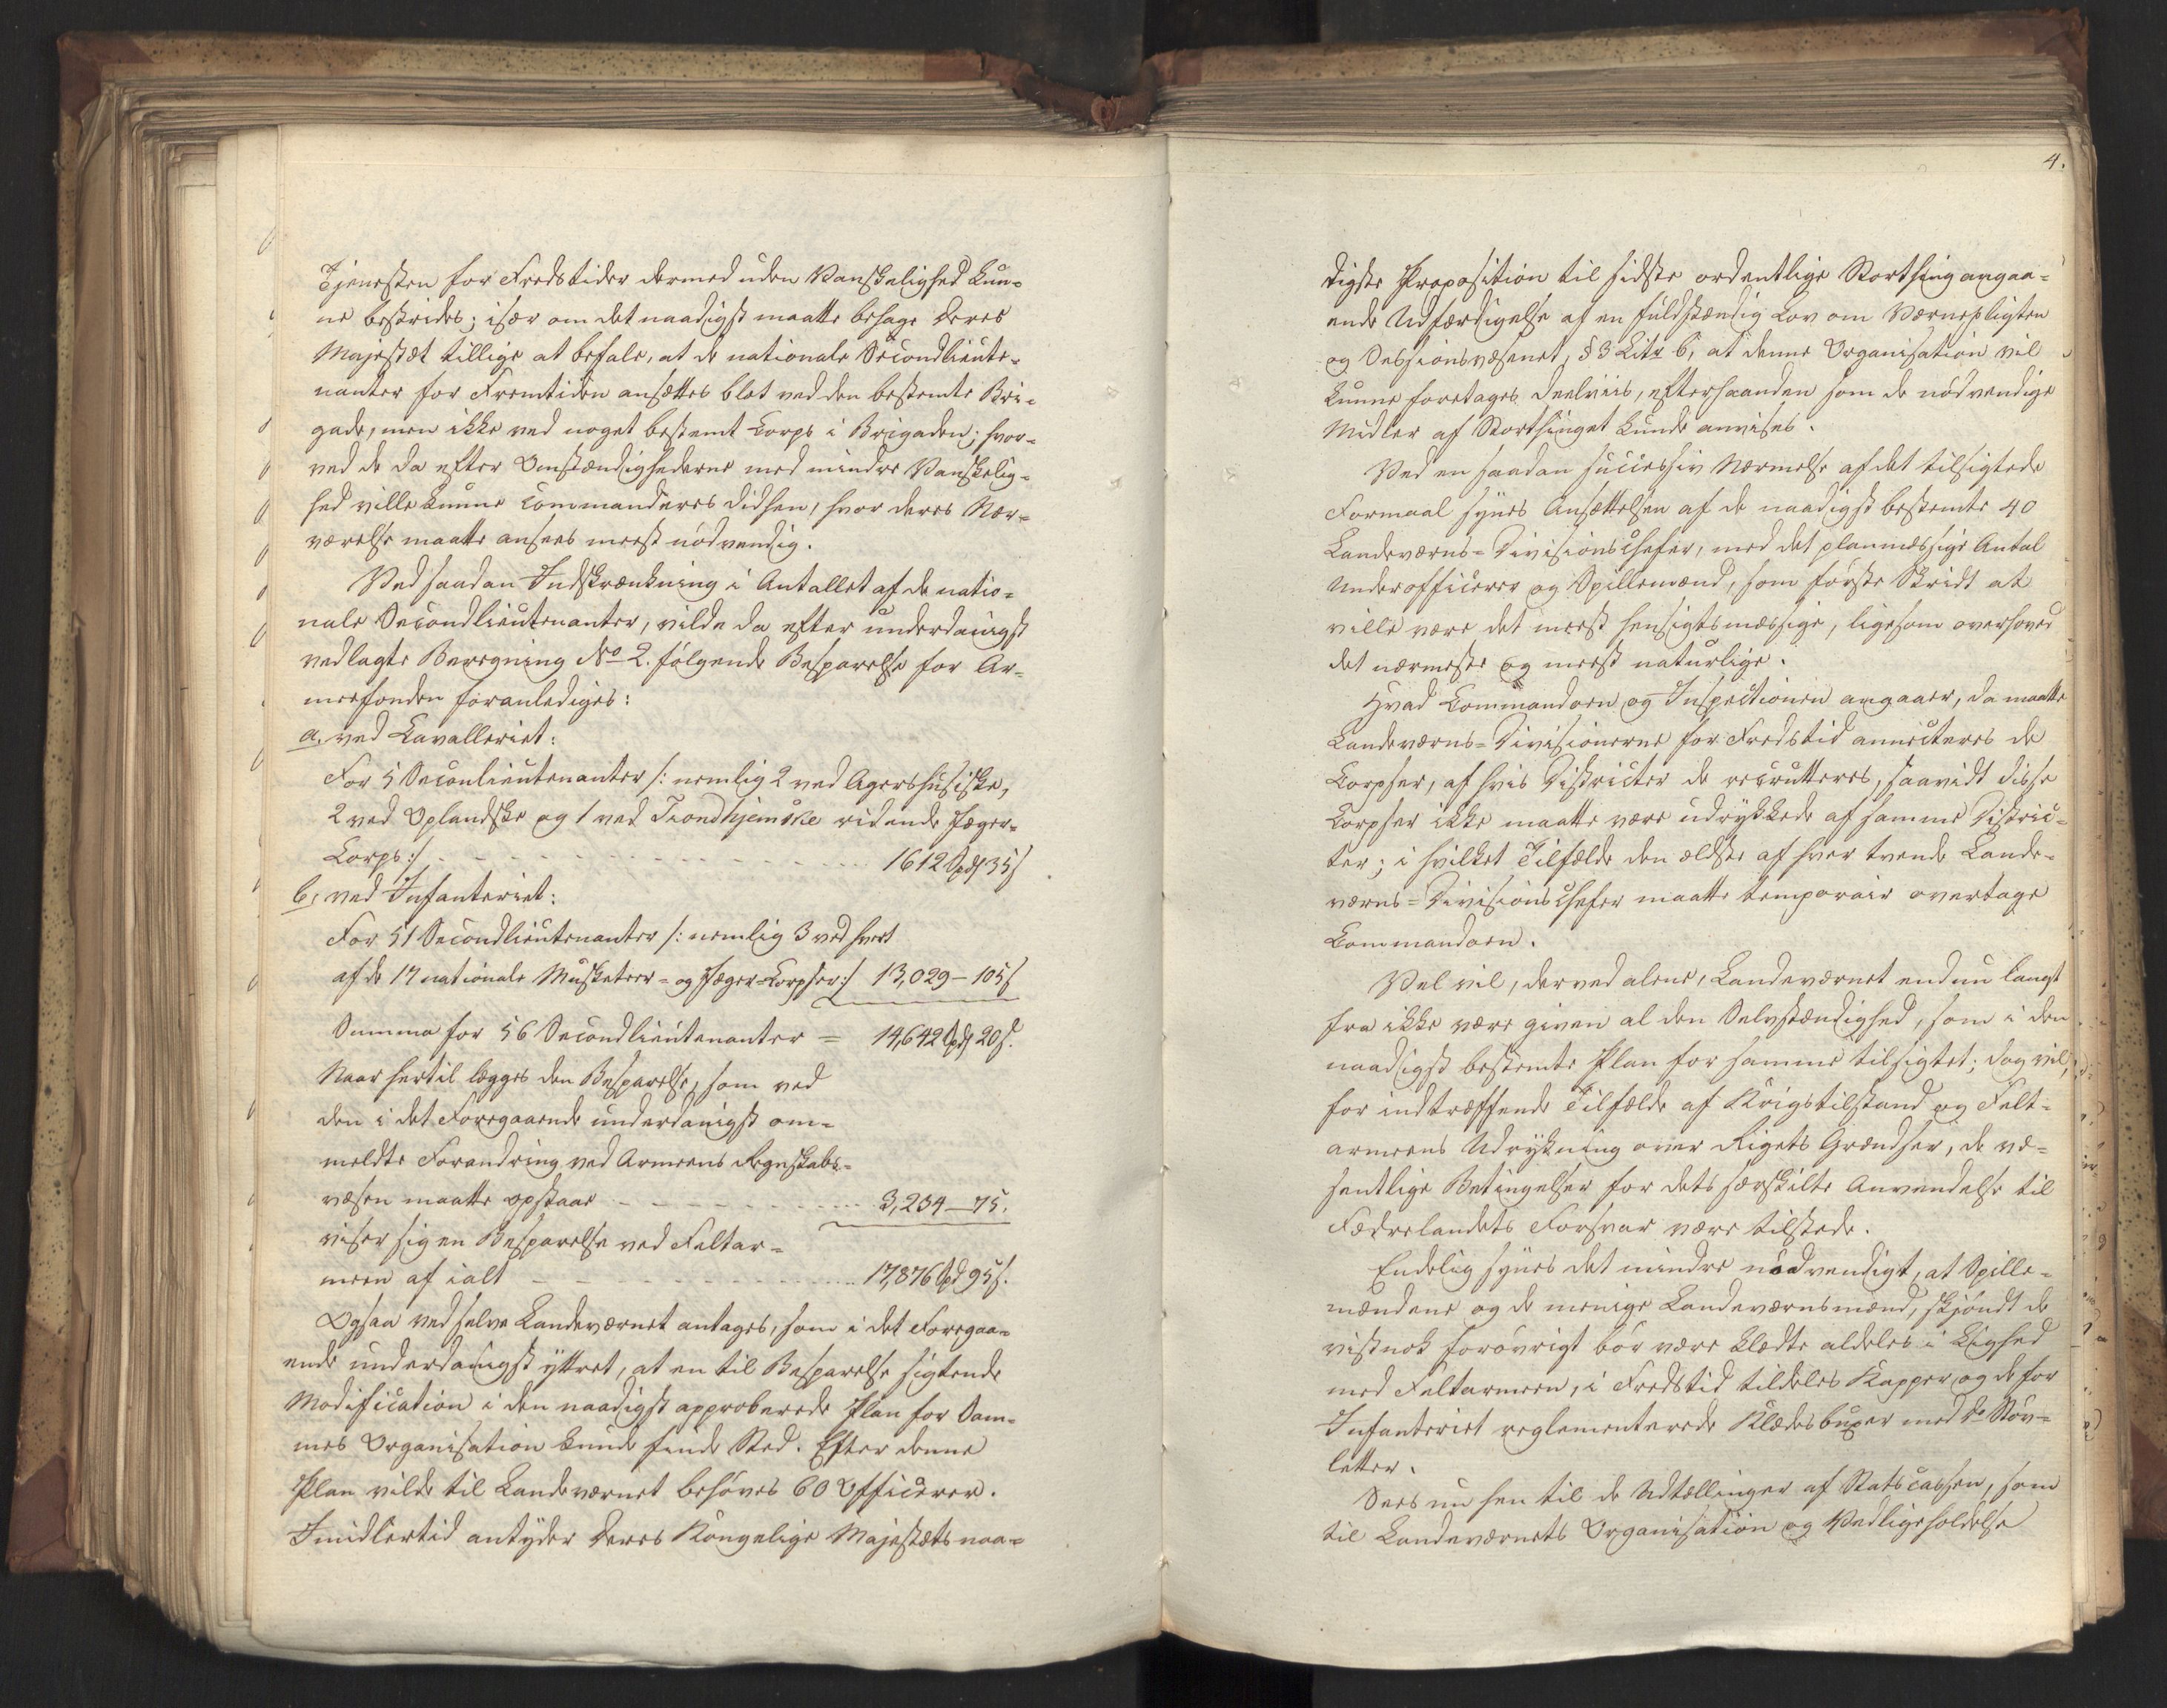 Tjenesten for Fredstider dermed uden Vanskelighed kun-
ne bestrides; især om det naadigst maatte behage Deres
Majestæt tillige at befale, at de nationale Secondlieute-
nanter for Fremtiden ansættes blot ved den bestemte Bri-
gade, men ikke ved noget bestemt Corps i Brigaden; hvor-
ved de da efter Omstændighederne med mindre Vanskelig-
hed ville kunne commanderes didhen, hvor deres Nær-
værelse maatte ansees meest nödvendig.
Ved saadan Indskrænkning i Antallet af de natio-
nale Secondlieutenanter, vilde da efter underdanigst
vedlagte Beregning No 2. fölgende Besparelse for Ar-
meefonden foranlediges:
a. ved Cavalleriet:
For 5 Seconlieutenanter /: nemlig 2 ved Agershusiske,
2 ved Oplandske og 1 ved Trondhjemske ridende Jæger-
Corps :/ 1612 Spd 35 s
b, ved Infanteriet:
For 51 Secondlieutenanter /: nemlig 3 ved hvert
af de 17 nationale Musketeer- og Jæger-Corpser :/ 13,029 - 105 s
Summa for 56 Secondlieutenanter = 14,642 Spd 20 s.
Naar hertil lægges den Besparelse, som ved
den i det Foregaaende underdanigst om-
meldte Forandring ved Armeens Regnskabs-
væsen maatte opstaae 3,234 - 75.
viser sig en Besparelse ved Feltar-
meen af ialt 17,876 Spd 95 s.
Ogsaa ved selve Landeværnet antages, som i det Foregaa-
ende underdanigst yttret, at en til Besparelse sigtende
Modification i den naadigst approberede Plan for Sam-
mes Organisation kunde finde Sted. Efter denne
Plan vilde til Landeværnet behöves 60 Officerer.
Imidlertid antyder Deres Kongelige Majestæts naa-
4.
digste Proposition til sidste ordentlige Storthing angaa-
ende Udfærdigelse af en fuldstændig Lov om Værnepligten
og Sessionsvæsenet, § 3 Litr b, at denne Organisation vil
kunne foretages deelviis, efterhaanden som de nödvendige
Midler af Storthinget kunde anvises.
Ved en saadan successiv Nærmelse af det tilsigtede
Formaal synes Ansættelsen af de naadigst bestemte 40
Landeværns-Divisionschefer, med det planmæssige Antal
Underofficerer og Spillemænd, som förste Skridt at
ville være det meest hensigtsmæssige, ligesom overhoved
det nærmeste og meest naturlige.
Hvad Commandoen og Inspectionen angaaer, da maatte
Landeværns-Divisionerne for Fredstid annecteres de
Corpser, af hvis Districter de recrutteres, saavidt disse
Corpser ikke maatte være udrykkede af samme Distric-
ter; i hvilket Tilfælde den ældste af hver tvende Lande-
værns-Divisionschefer maatte temporair overtage
Commandoen.
Vel vil, derved alene, Landeværnet endnu langt
fra ikke være given al den Selvstændighed, som i den
naadigst bestemte Plan for samme tilsigtet; dog vil,
for indtræffende Tilfælde af Krigstilstand og Felt-
armeens Udrykning over Rigets Grændser, de væ-
sentlige Betingelser for dets særskilte Anvendelse til
Fædrelandets Forsvar være tilstede.
Endelig synes det mindre nödvendigt, at Spille-
mændene og de menige Landeværnsmænd, skjöndt de
vistnok forövrigt bör være klædte aldeles i Lighed
med Feltarmeen, i Fredstid tildeles Kapper, og de for
Infanteriet reglementerede Klædesbuxer med do Stöv-
letter.
Sees nu hen til de Udtællinger af Statscassen, som
til Landeværnets Organisation og Vedligeholdelse